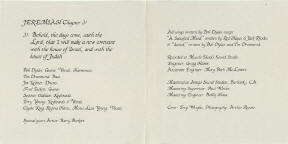 JEREMIAH Chapter 31
31. Behold, the days come, saith the
Lord, that I will make a new covenant
with the house of Israel, and with the
house of Judah
Bob Dylan: Guitar, Vocals, Harmonica
Tim Drummond: Bass
Jim Keltner: Drums
Fred Tackett: Guitar
Spooner Oldham: Keyboards
Terry Young: Keyboards & Vocals
Clydie King, Regina Havis, Mona Lisa Young: Vocals
Special guest Artist: Barry Beckett
All songs written by Bob Dylan except
"A Satisfied Mind" written by Red Hayes & Jack Rhodes
& "Saved," written by Bob Dylan and Tim Drummond
Recorded at Muscle Shoals Sound Studio
Engineer: Gregg Hamm
Assistant Engineer: Mary Beth McLemore
Mastering Superior: Paul Wexler
Mastering Engineer: Bobby Hata